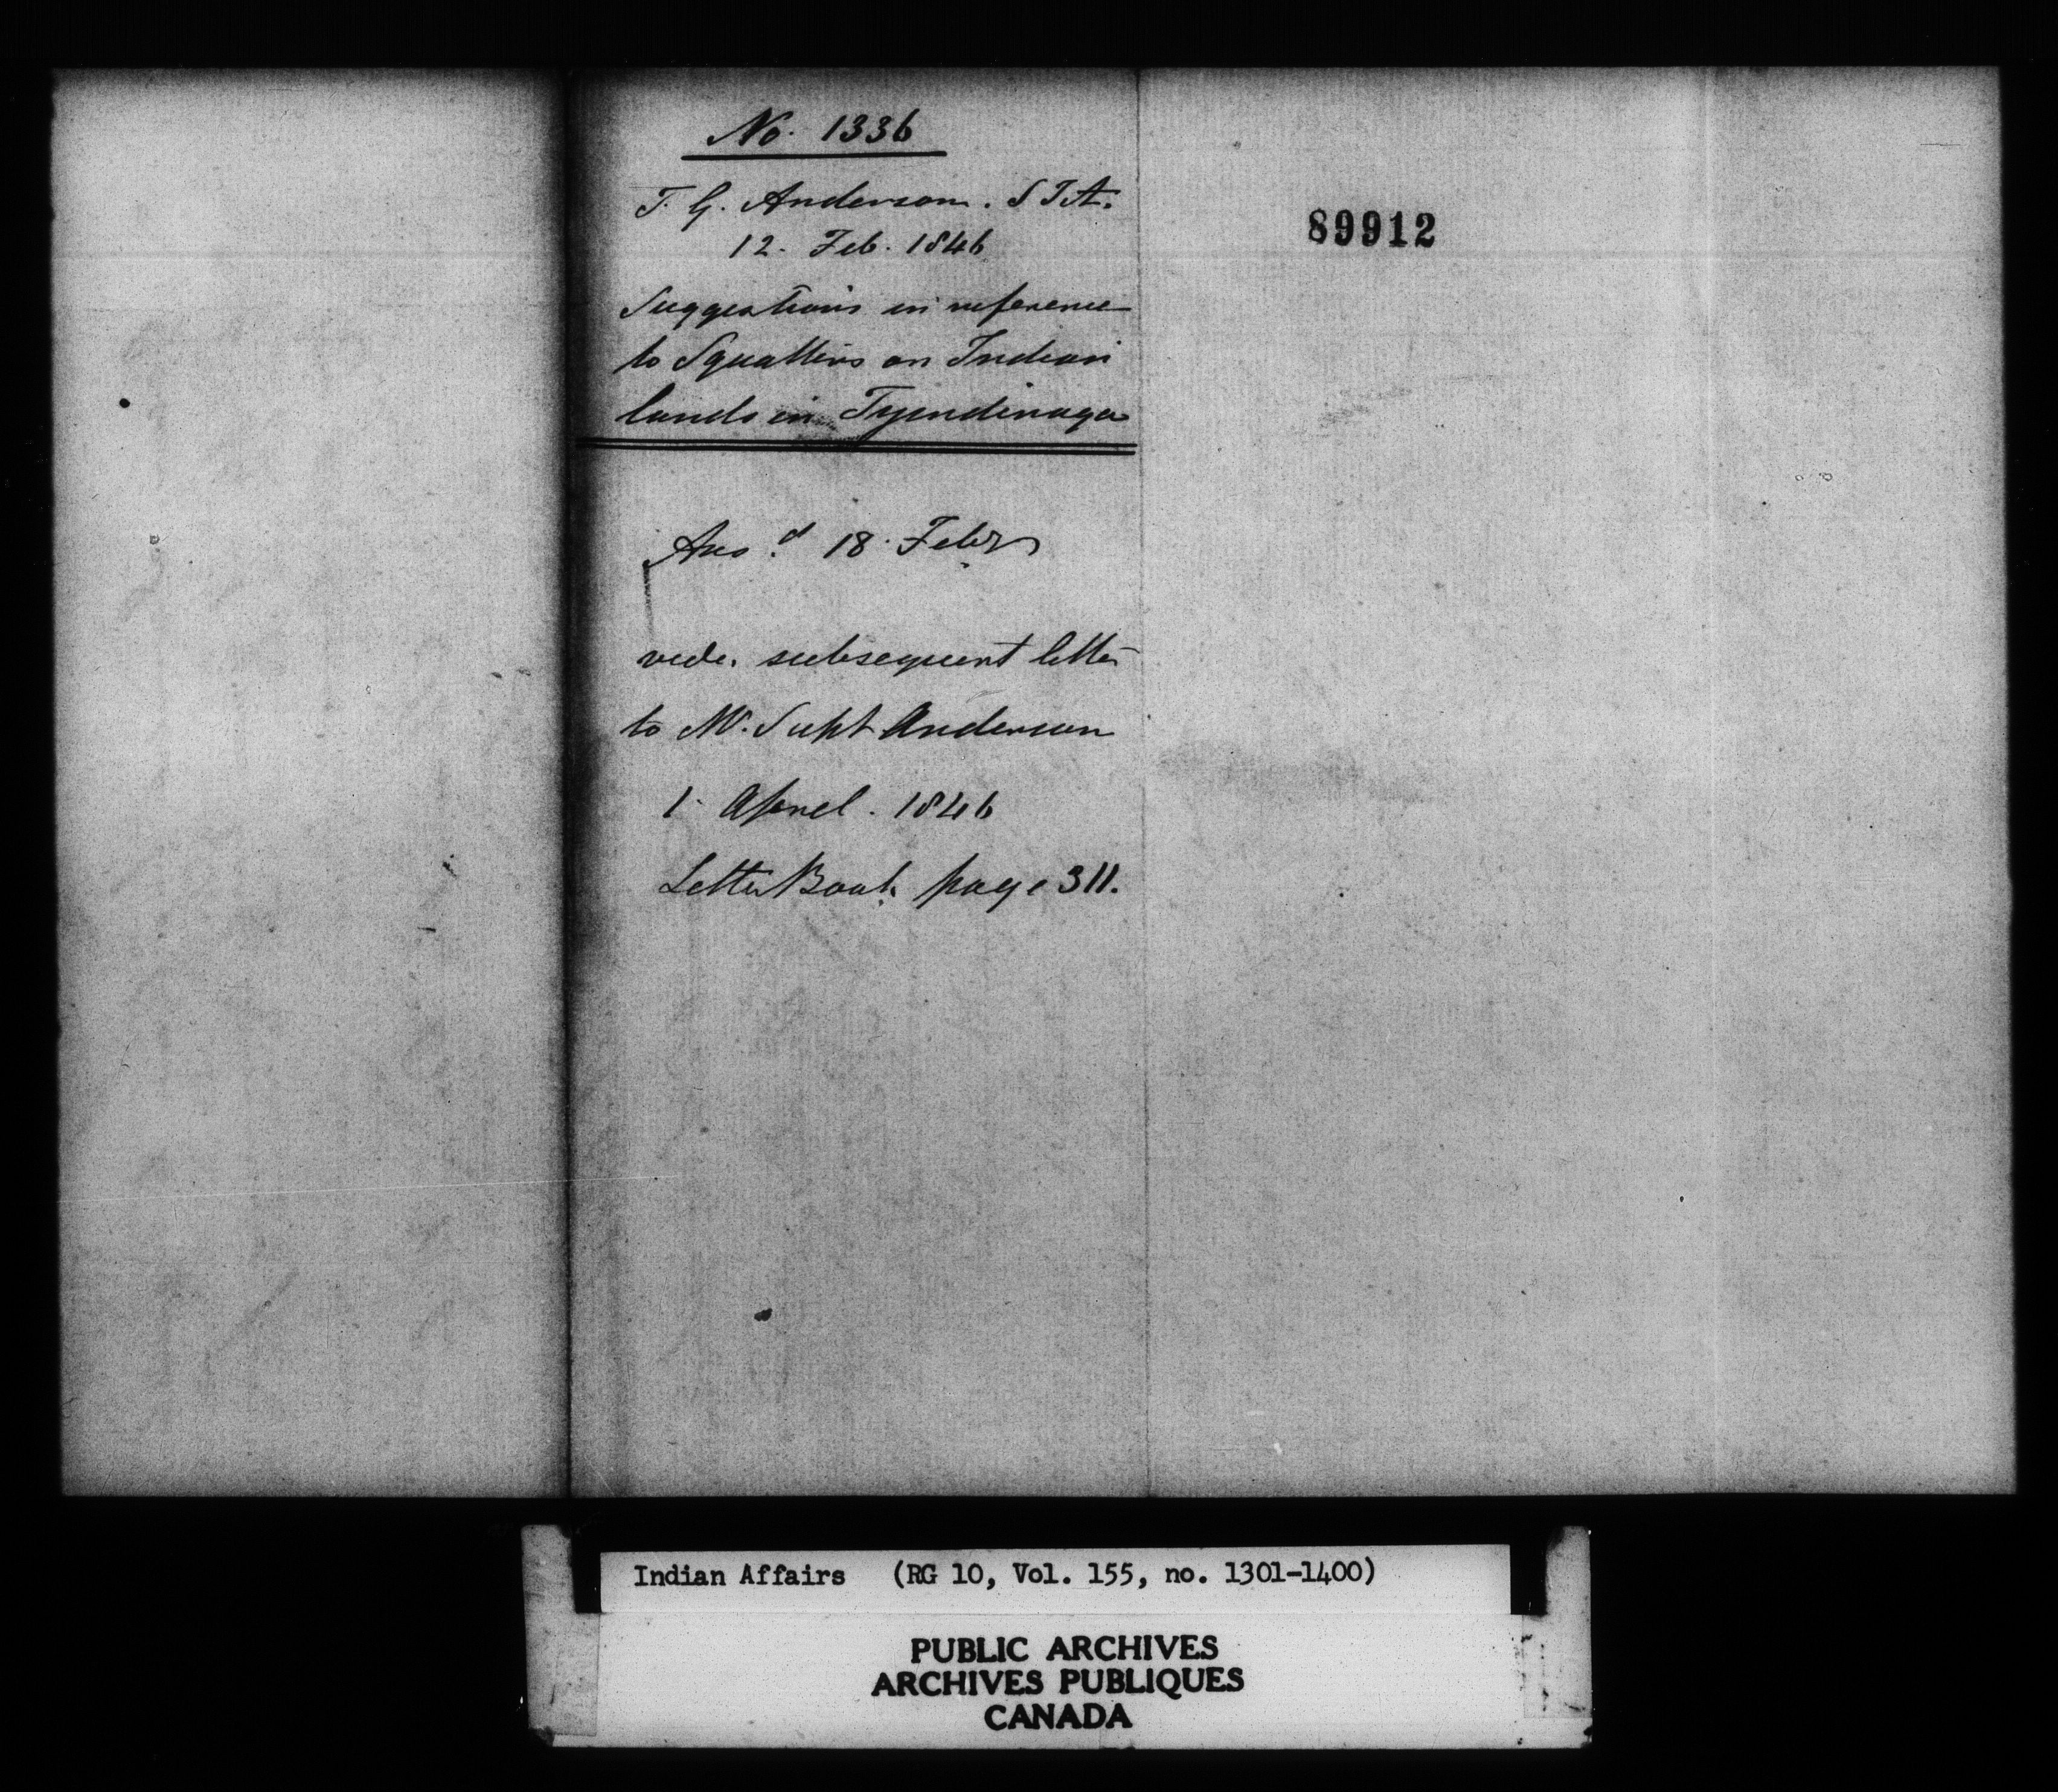 No. 1336
T. G. Anderson. S I A.
12. Feb. 1846
Suggestions in reference
to Squatters on Indian
lands in Tyendinaga
Ansd 18. Feby
vide. subsequent letter
to Mr. Supt Anderson
1. April. 1846
Letter Book page 311.
89912
Indian Affairs (RG 10, Vol. 155, no. 1301-1400)
PUBLIC ARCHIVES
ARCHIVES PUBLIQUES
CANADA